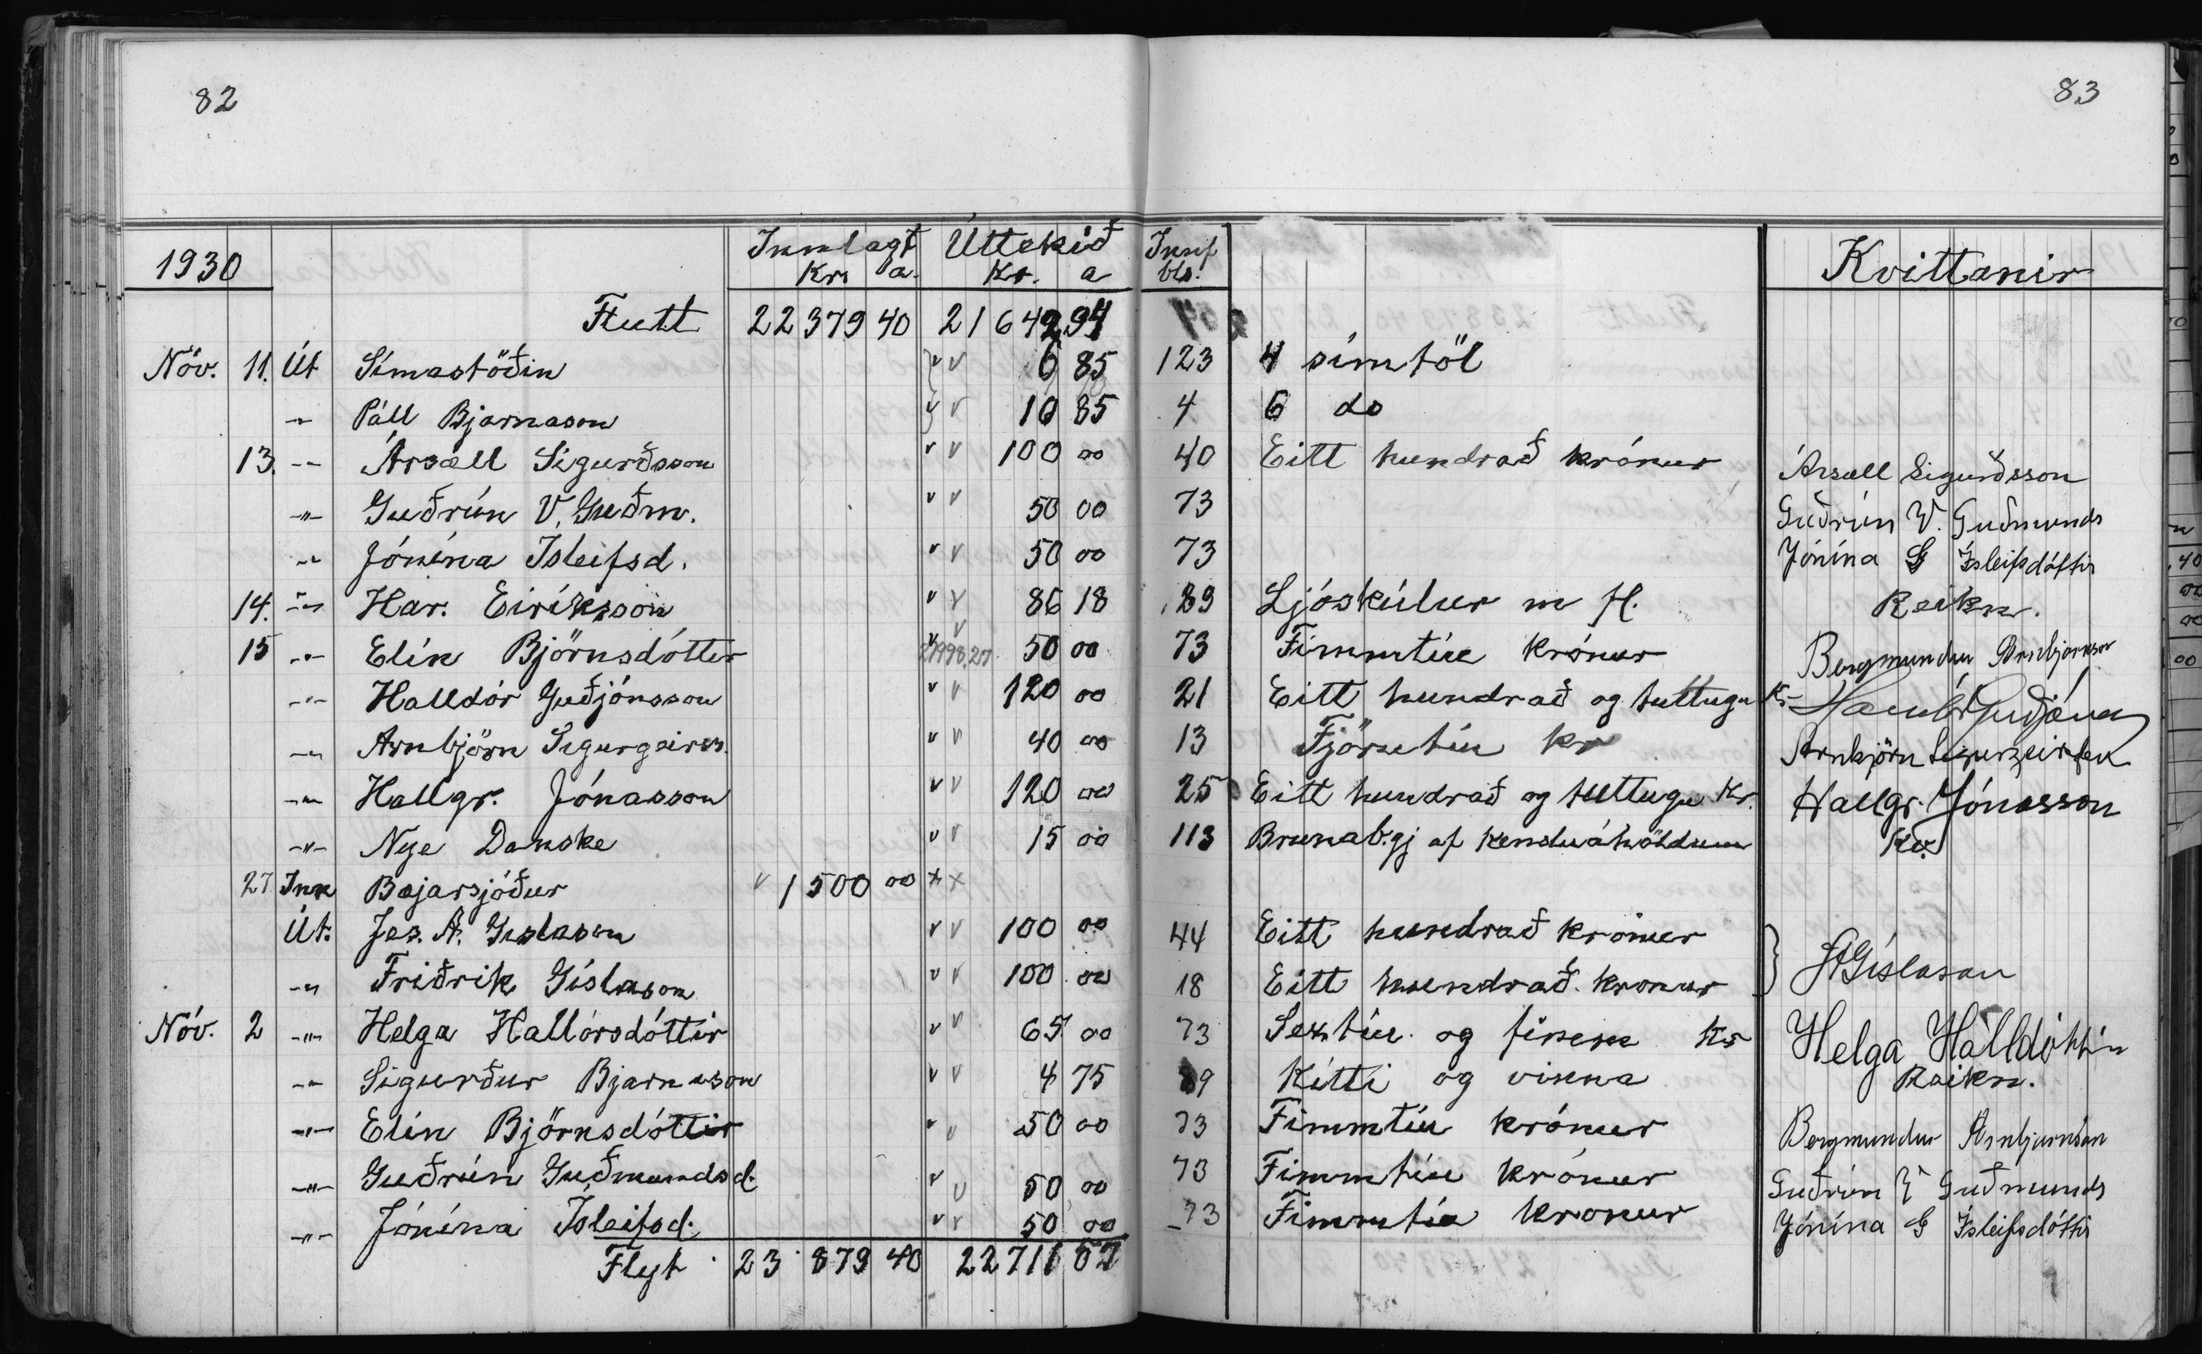 82
83
1930 Innlagt Úttekið Innf Kvittanir
Kr. a. Kr. a bls.
Flutt 22379 40 21642 94
Nóv. 11. Út Símastöðin 6 85 123 4 símtöl
-"- Páll Bjarnason 10 85 4 6 do
13. -"- Ársæll Sigurðsson 100 00 40 Eitt hundrað krónur Ársæll Sigurðsson
-"- Guðrún V. Guðm. 50 00 73 Guðrún V. Guðmunds
-"- Jónína Ísleifsd. 50 00 73 Jónína G Ísleifsdóttir
14. -"- Har. Eiríksson 86 18 89 Ljóskúlur m fl. Reikn.
15 -"- Elín Björnsdóttir 50 00 73 Fimmtíu krónur Bergmundur Arnbjörnsson
-"- Halldór Guðjónsson 120 00 21 Eitt hundrað og tuttugu kr Halldór Guðjónss
-"- Arnbjörn Sigurgeirss. 40 00 13 Fjörutíu kr Arnbjörn Sigurgeirsson
-"- Hallgr. Jónasson 120 00 25 Eitt hundrað og tuttugu kr. Hallgr. Jónasson
-"- Nye Danske 15 00 113 Brunab.gj af kensluáhöldum Kv.
27 Inn Bæjarsjóður 1500 00
Út. Jes. A. Gíslason 100 00 44 Eitt hundrað krónur
-"- Friðrik Gíslason 100 00 18 Eitt hundrað krónur JAGíslason
Nóv. 2 -"- Helga Hallórsdóttir 65 00 73 Sextíu og fimm kr Helga Halldóttir
-"- Sigurður Bjarnason 4 75 89 Kítti og vinna Reikn.
-"- Elín Björnsdóttir 50 00 73 Fimmtíu krónur Bergmundur Arnbjarnson
-"- Guðrún Guðmundsd. 50 00 73 Fimmtíu krónur Guðrún V Guðmunds
-"- Jónína Ísleifsd. 50 00 73 Fimmtíu kronur Jónína G Ísleifsdóttir
Flyt 23 879 40 22711 57